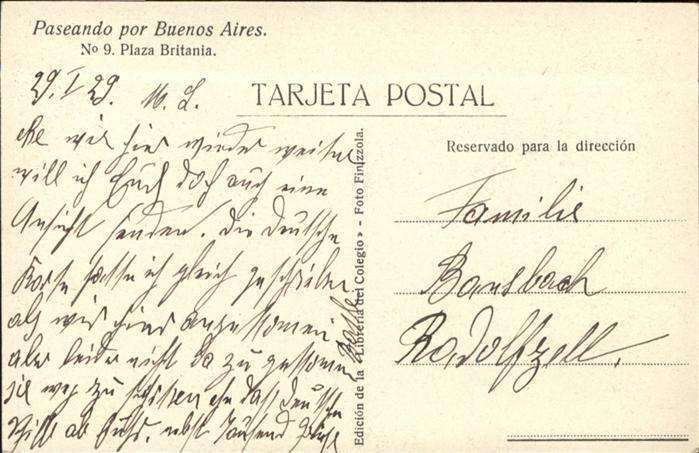 Paseando por Buenos Aires.
No 9. Plaza Britania.
29.I 29. M. L.
TARJETA POSTAL
Ehe wir hier wieder weiter
will ich Euch doch auch eine
Ansicht senden. Die deutsche
Karte hatte ich gleich geschrieben
als wir hier angekommen
aber leider nicht da zu gekommen
sie weg zu schicken ehe das deutsche
Schiff ab fuhr. nebst Tausend Grüße
Edición de la «Librería del Colegio» - Foto Finizzola.
Reservado para la dirección
Familie
Bansbach
Radolfzell.